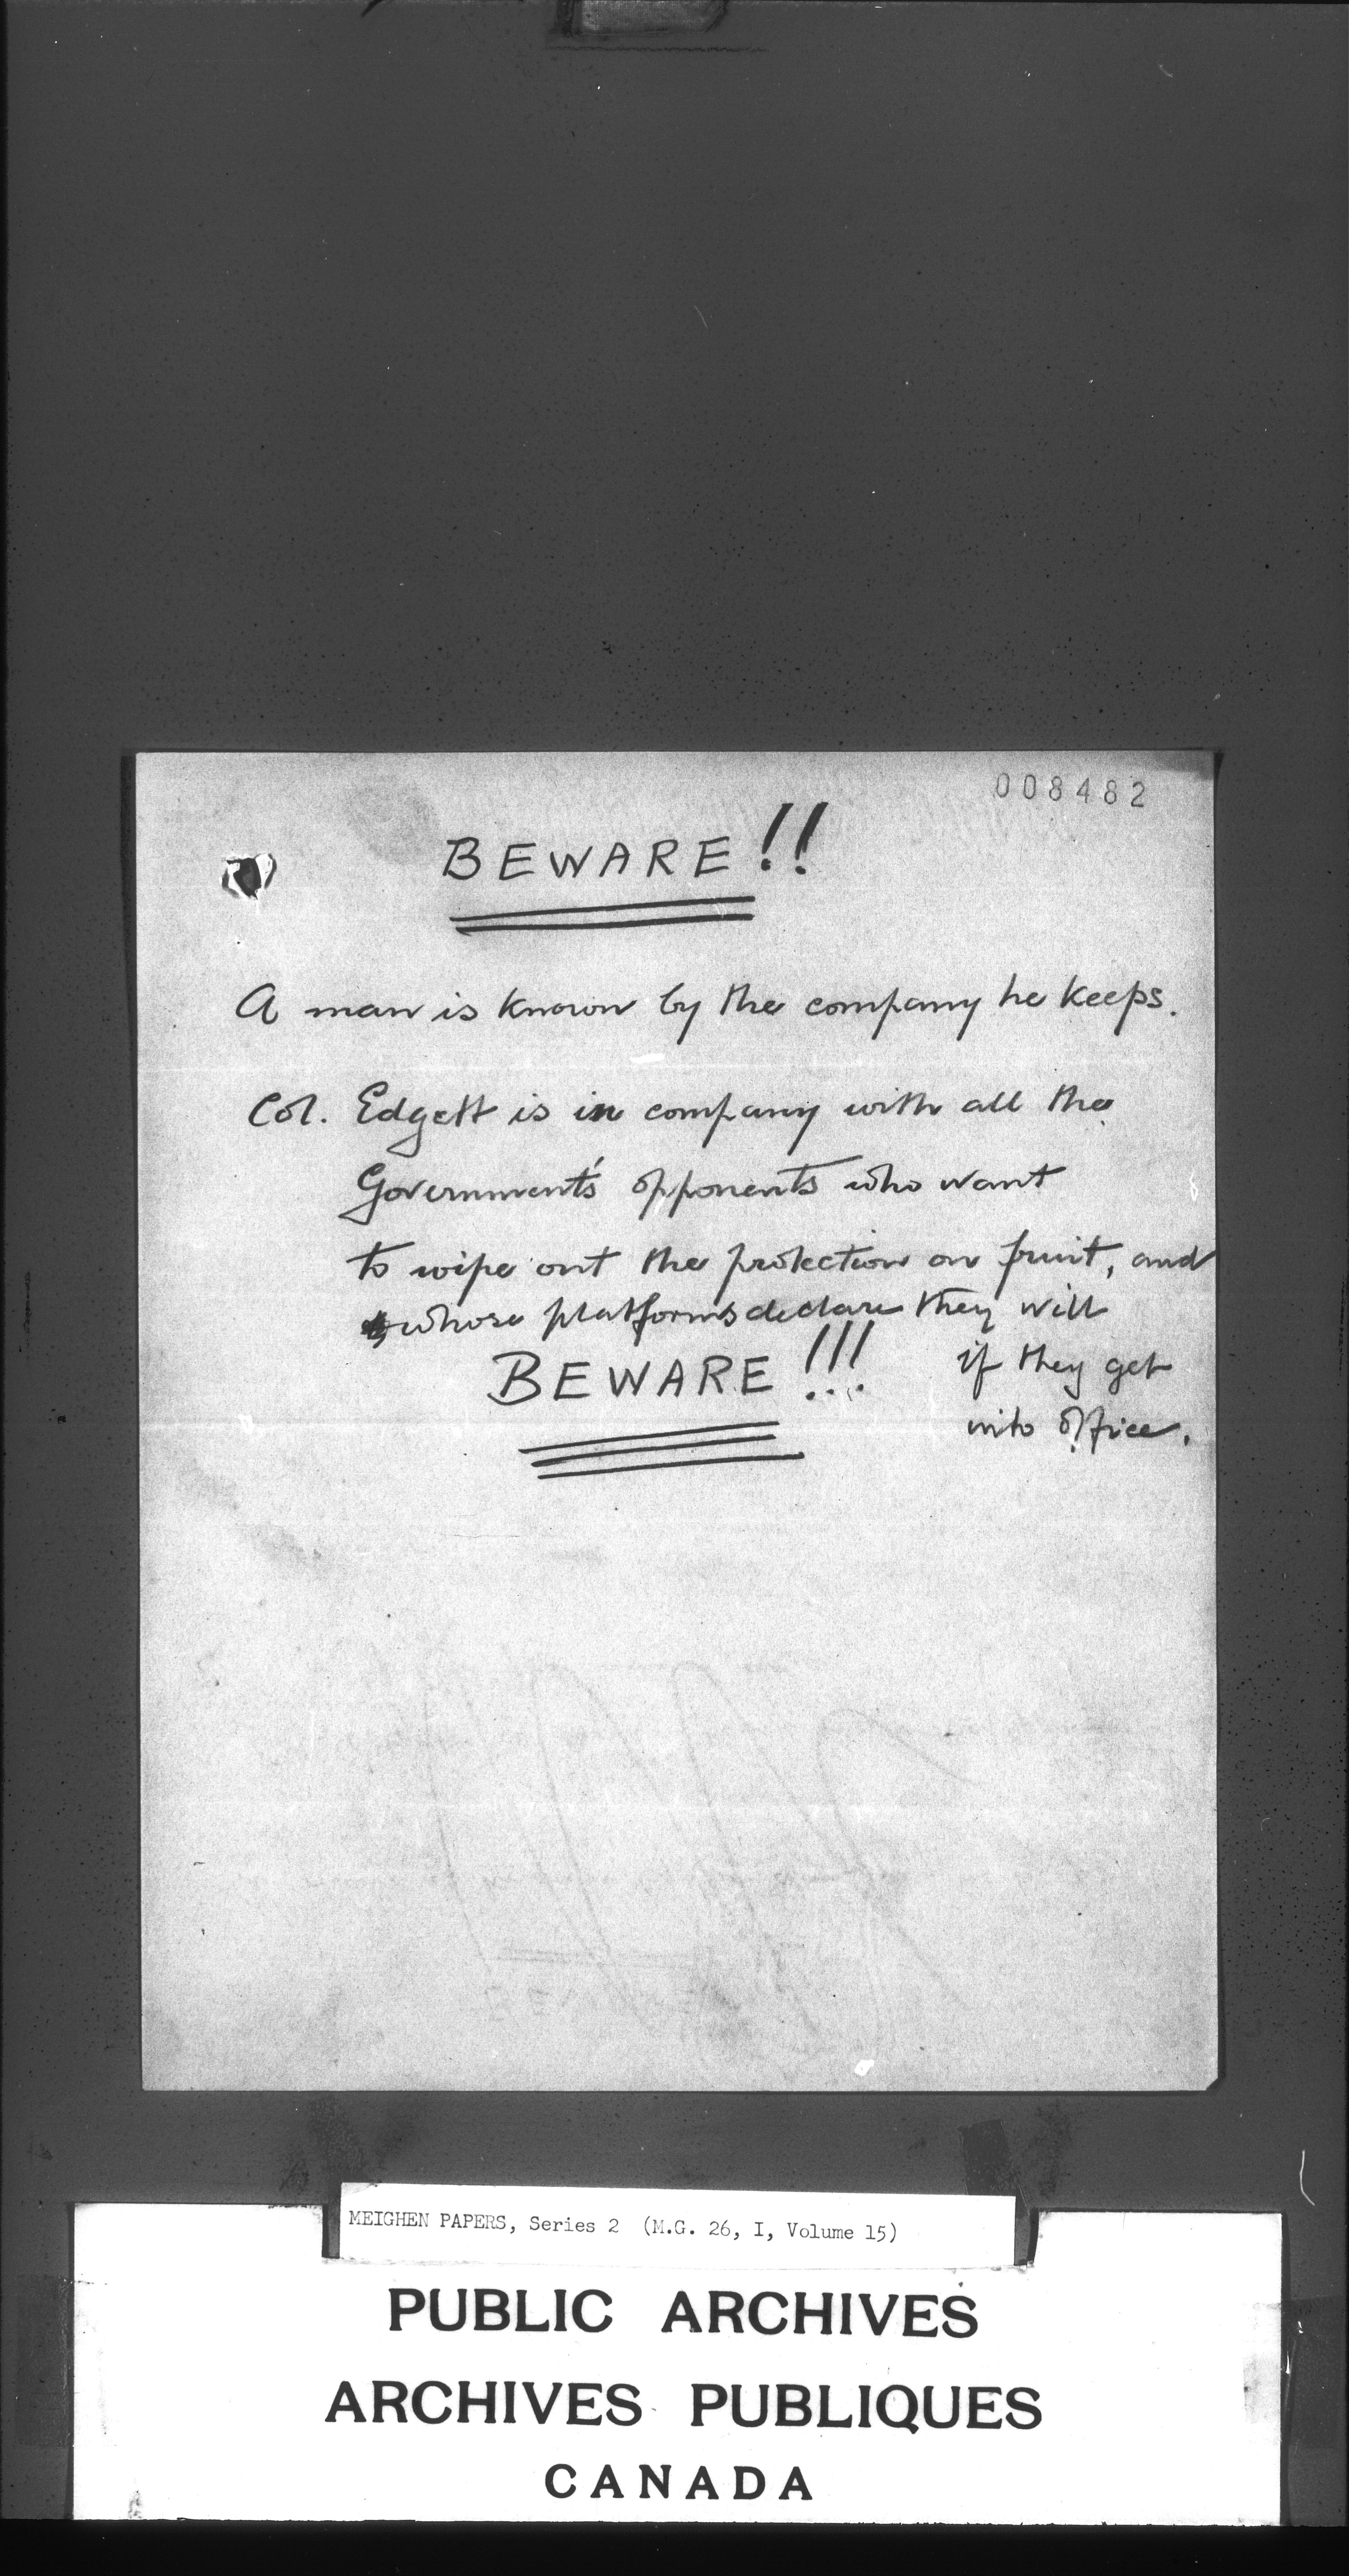 008482
BEWARE!!
A man is known by the company he keeps.
Col. Edgett is in company with all the
Government's opponents who want
to wipe out the protection on fruit, and
whose platforms declare they will
if they get
into office.
BEWARE!!!
MEIGHEN PAPERS, Series 2 (M.G. 26, I, Volume 15)
PUBLIC ARCHIVES
ARCHIVES PUBLIQUES
CANADA